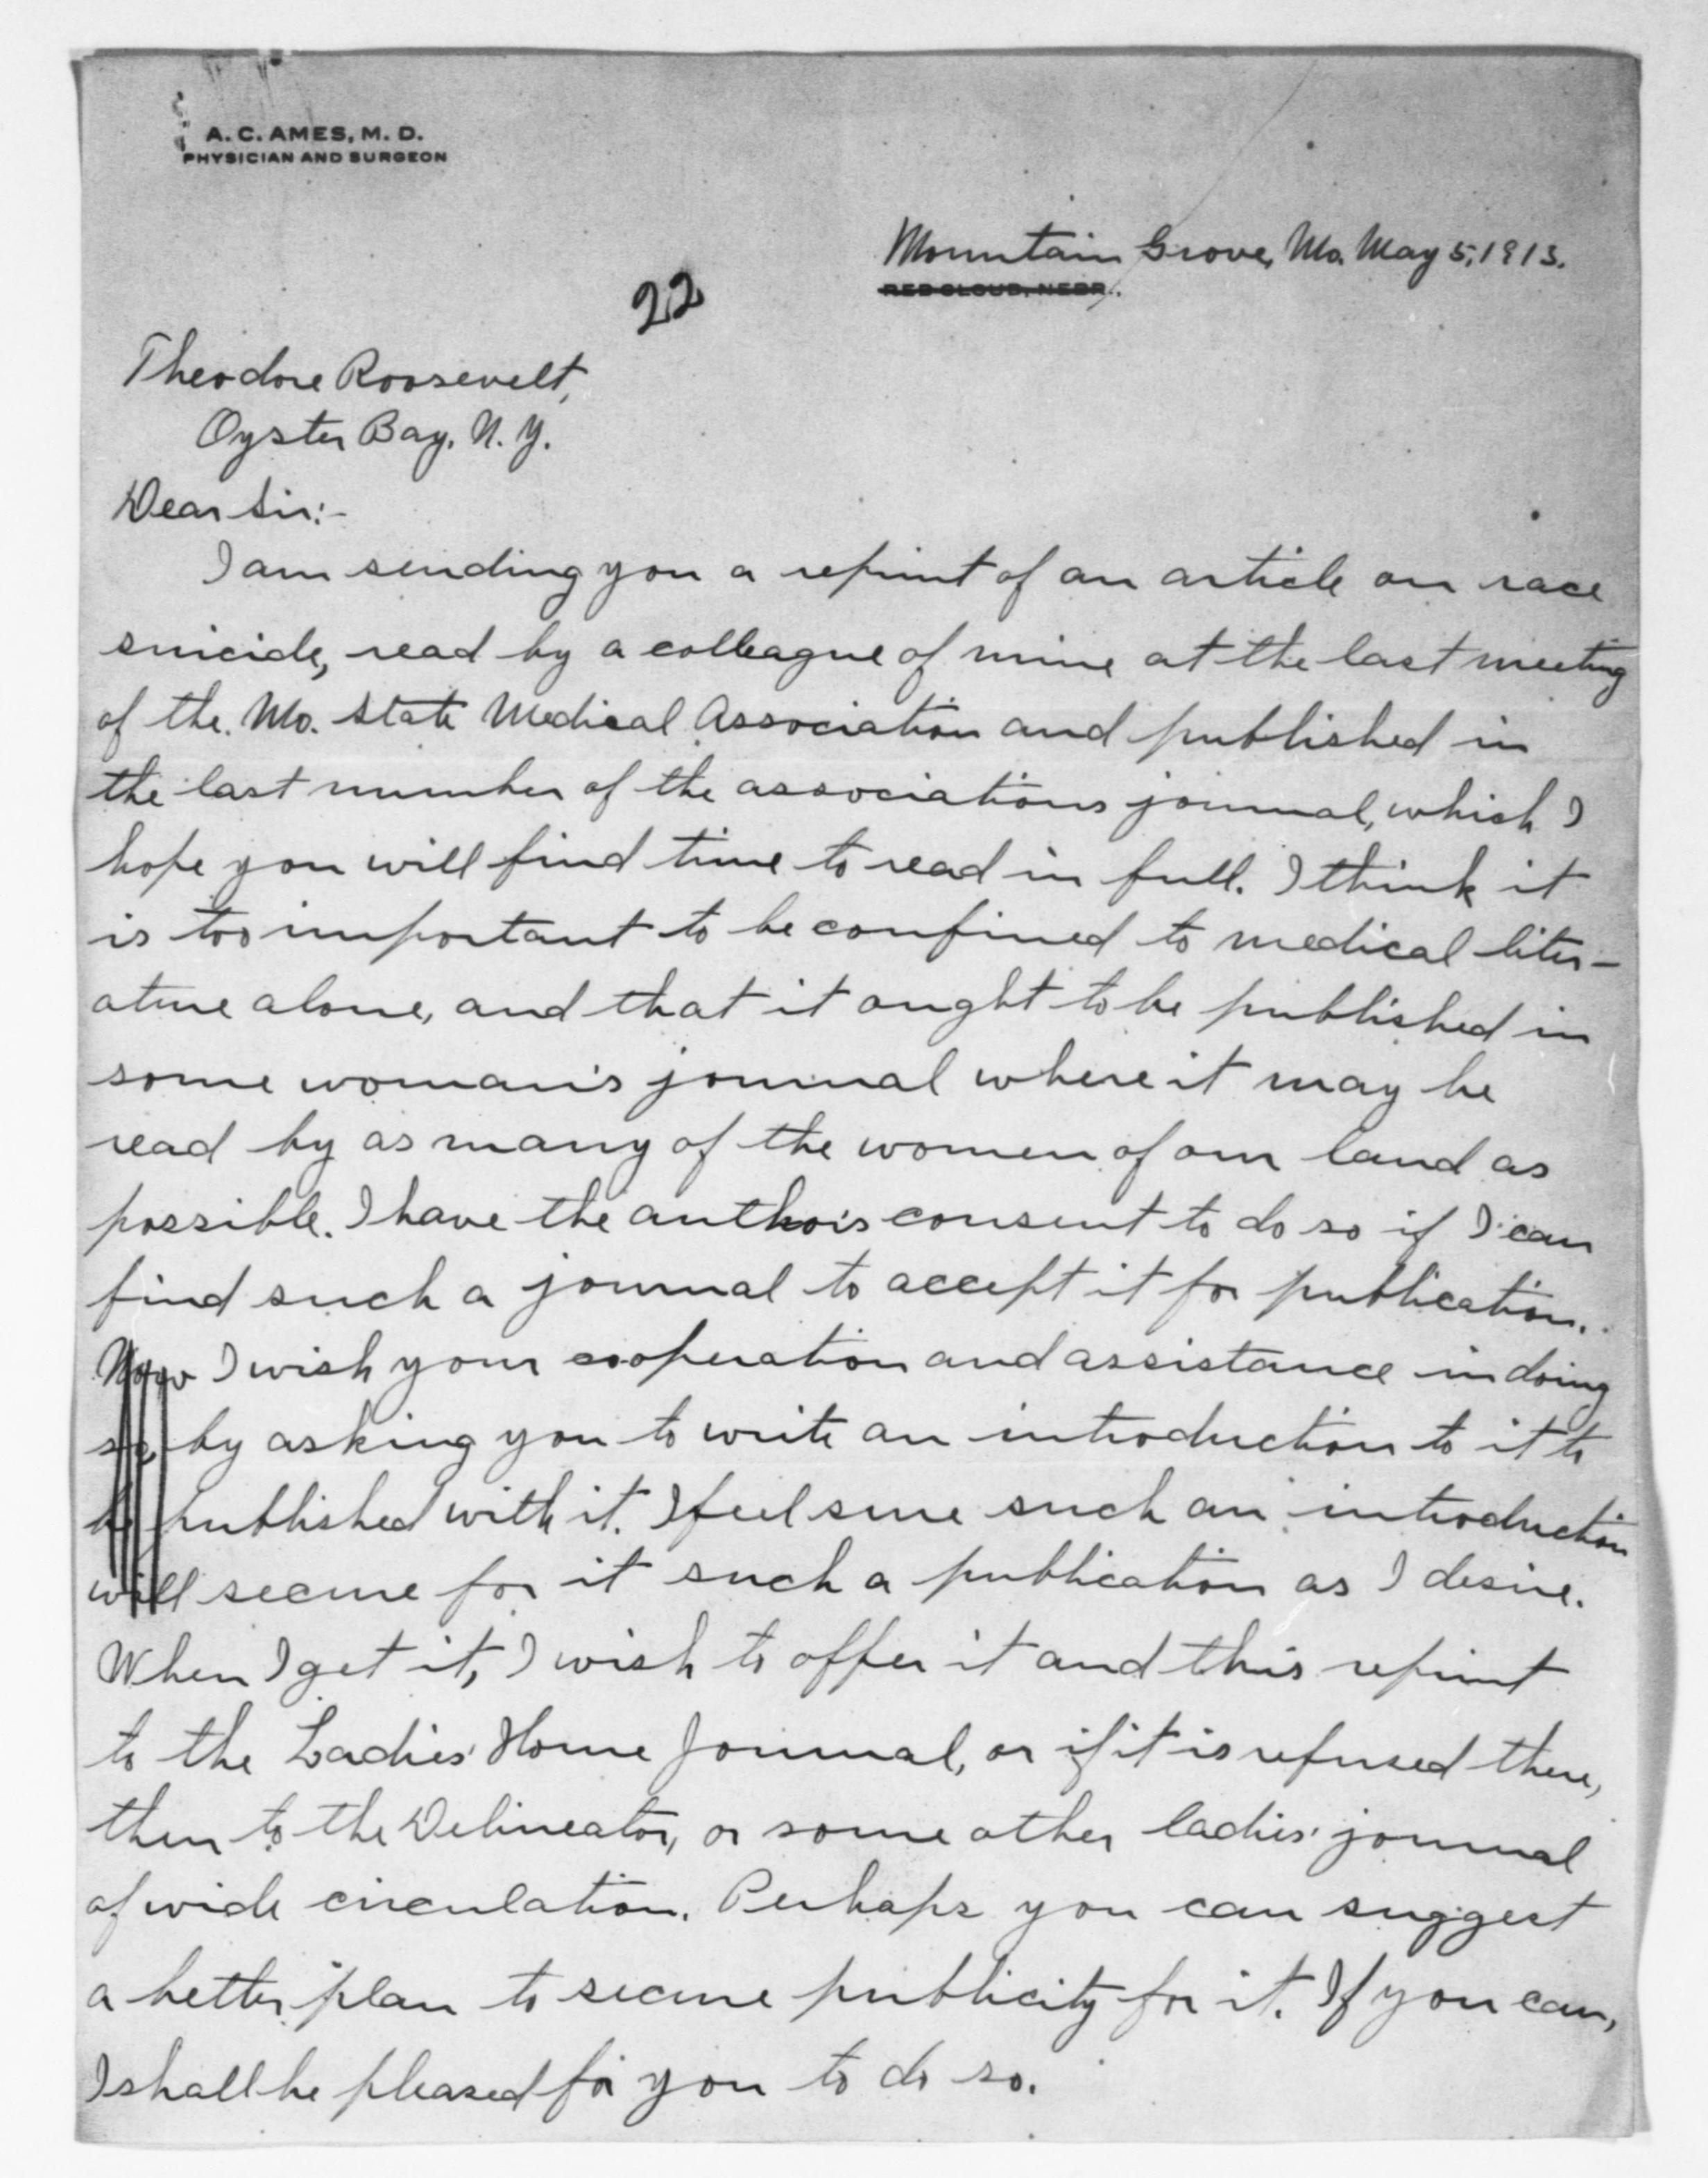 A. C. AMES, M. D.
PHYSICIAN AND SURGEON
Mountain Grove, Mo. May 5, 1913.
RED CLOUD, NEBR.
22
Theodore Roosevelt,
Oyster Bay, N. Y.
Dear Sir:-
I am sending you a reprint of an article on race
suicide, read by a colleague of mine at the last meeting
of the Mo. State Medical Association and published in
the last number of the associations journal, which I
hope you will find time to read in full. I think it
is too important to be confined to medical liter-
ature alone, and that it ought to be published in
some woman's journal where it may be
read by as many of the women of our land as
possible. I have the author's consent to do so if I can
find such a journal to accept it for publication.
Now I wish your cooperation and assistance in doing
so, by asking you to write an introduction to it to
be published with it. I feel sure such an introduction
will secure for it such a publication as I desire.
When I get it, I wish to offer it and this reprint
to the Ladies' Home Journal, or if it is refused there,
then to the Delineator, or some other ladies' journal
of wide circulation. Perhaps you can suggest
a better plan to secure publicity for it. If you can,
I shall be pleased for you to do so.